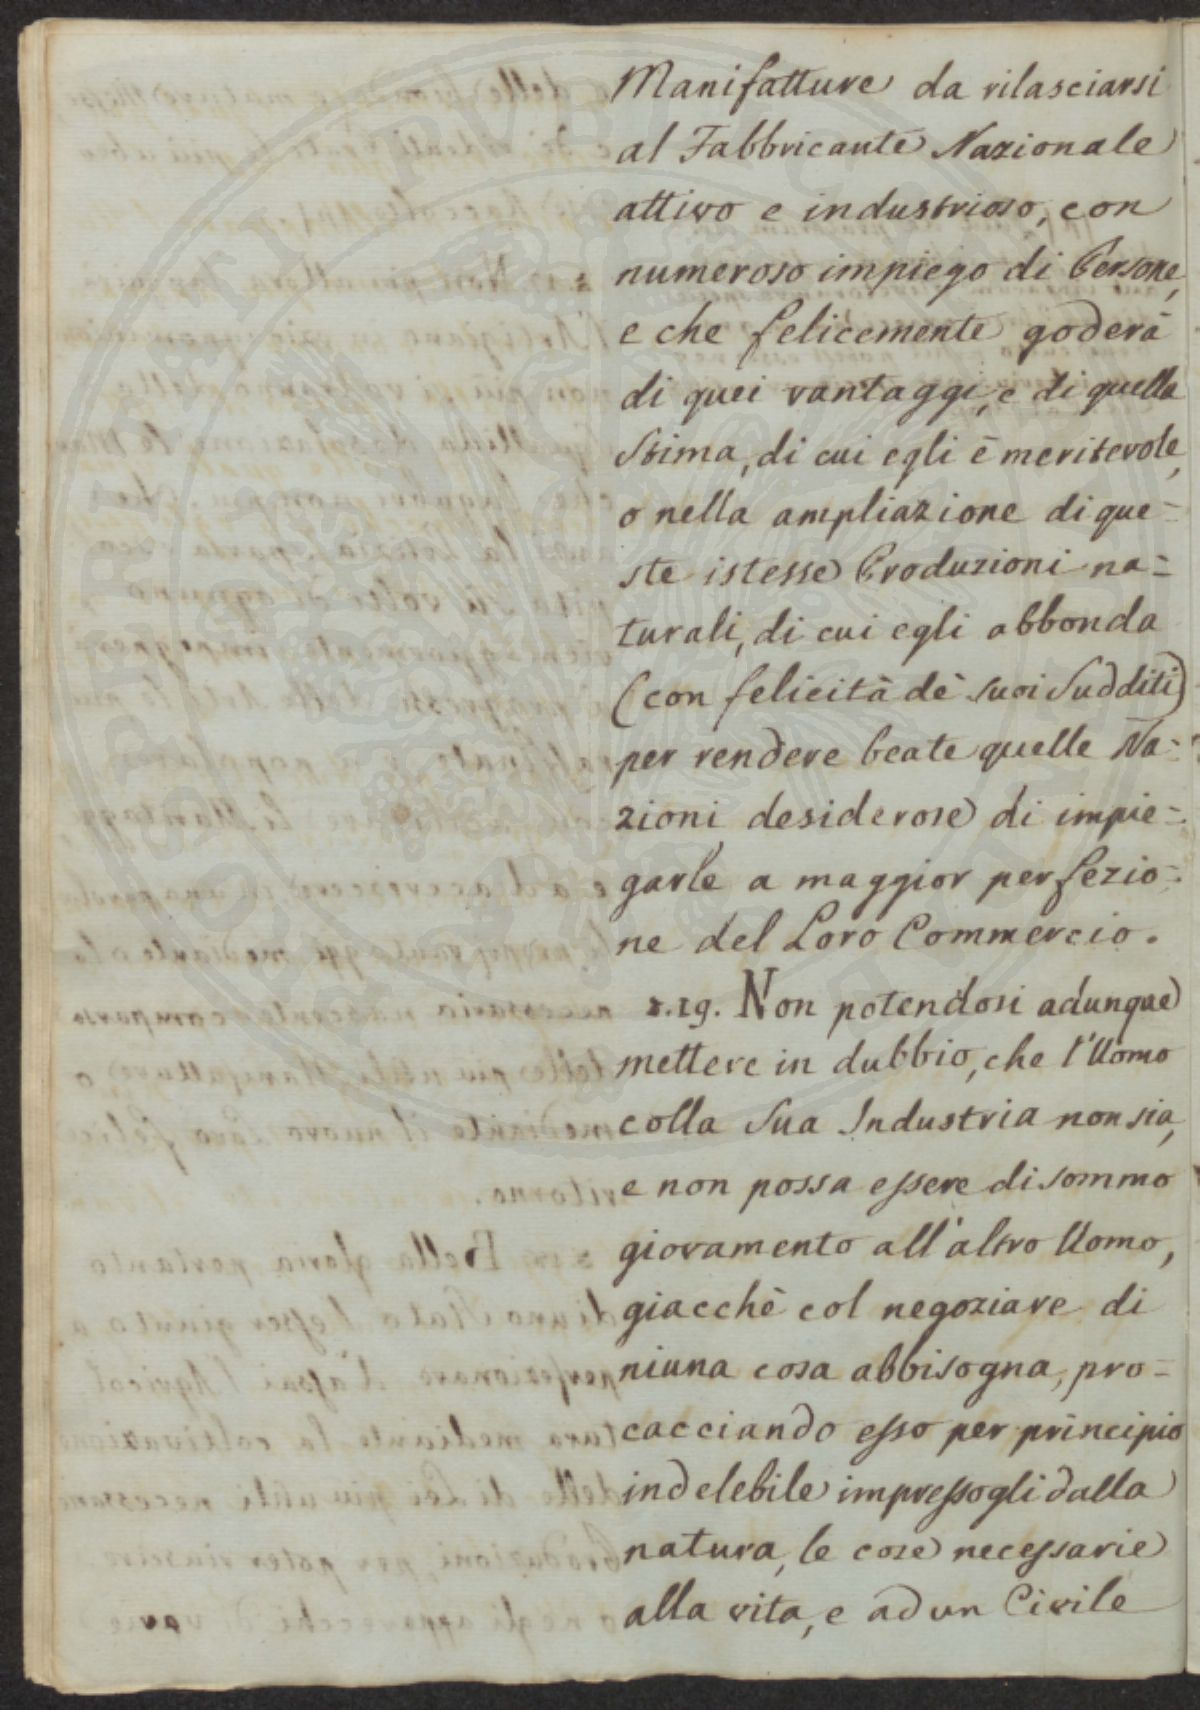 Manifatture da rilasciarsi
al Fabbricante Nazionale
attivo e industrioso, con
numeroso impiego di Persone,
e che felicemente goderà
di quei vantaggi, e di quella
Stima, di cui egli è meritevole,
o nella ampliazione di que=
ste istesse Produzioni na=
turali, di cui egli abbonda
(con felicità de' suoi Sudditi)
per rendere beate quelle Na=
zioni desiderose di impie=
garle a maggior perfezio=
ne del Loro Commercio.
§.19. Non potendosi adunque
mettere in dubbio, che l'Uomo
colla Sua Industria non sia,
e non possa essere di sommo
giovamento all'altro Uomo,
giacchè col negoziare di
niuna cosa abbisogna, pro=
cacciando esso per principio
indelebile impressogli dalla
natura, le cose necessarie
alla vita, e ad un Civile